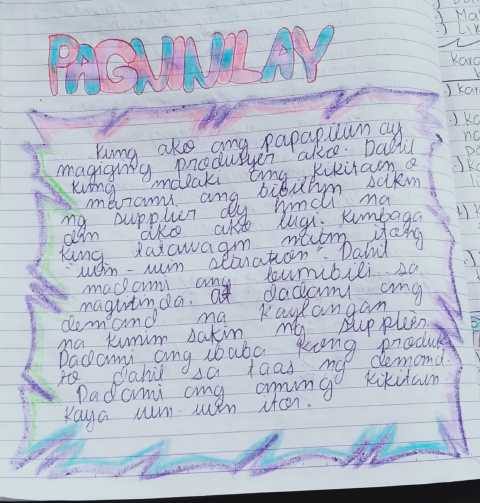 PAGNINILAY
Kung ako ang papapiliin ay
magiging produsyer ako. Dahil
kung malaki ang kikitain o
marami ang bibilhin sakin
ng supplier ay hindi na
din ako ako lugi. kumbaga
kung tatawagin natin itong
"win-win situation". Dahil
madami ang bumibili sa
nagtitinda. at dadami ang
demand na kaylangan
na kunin sakin ng supplier.
Dadami ang ibaba kong produk
to dahil sa taas ng demand.
Dadami ang aming kikitain
kaya win-win ito.